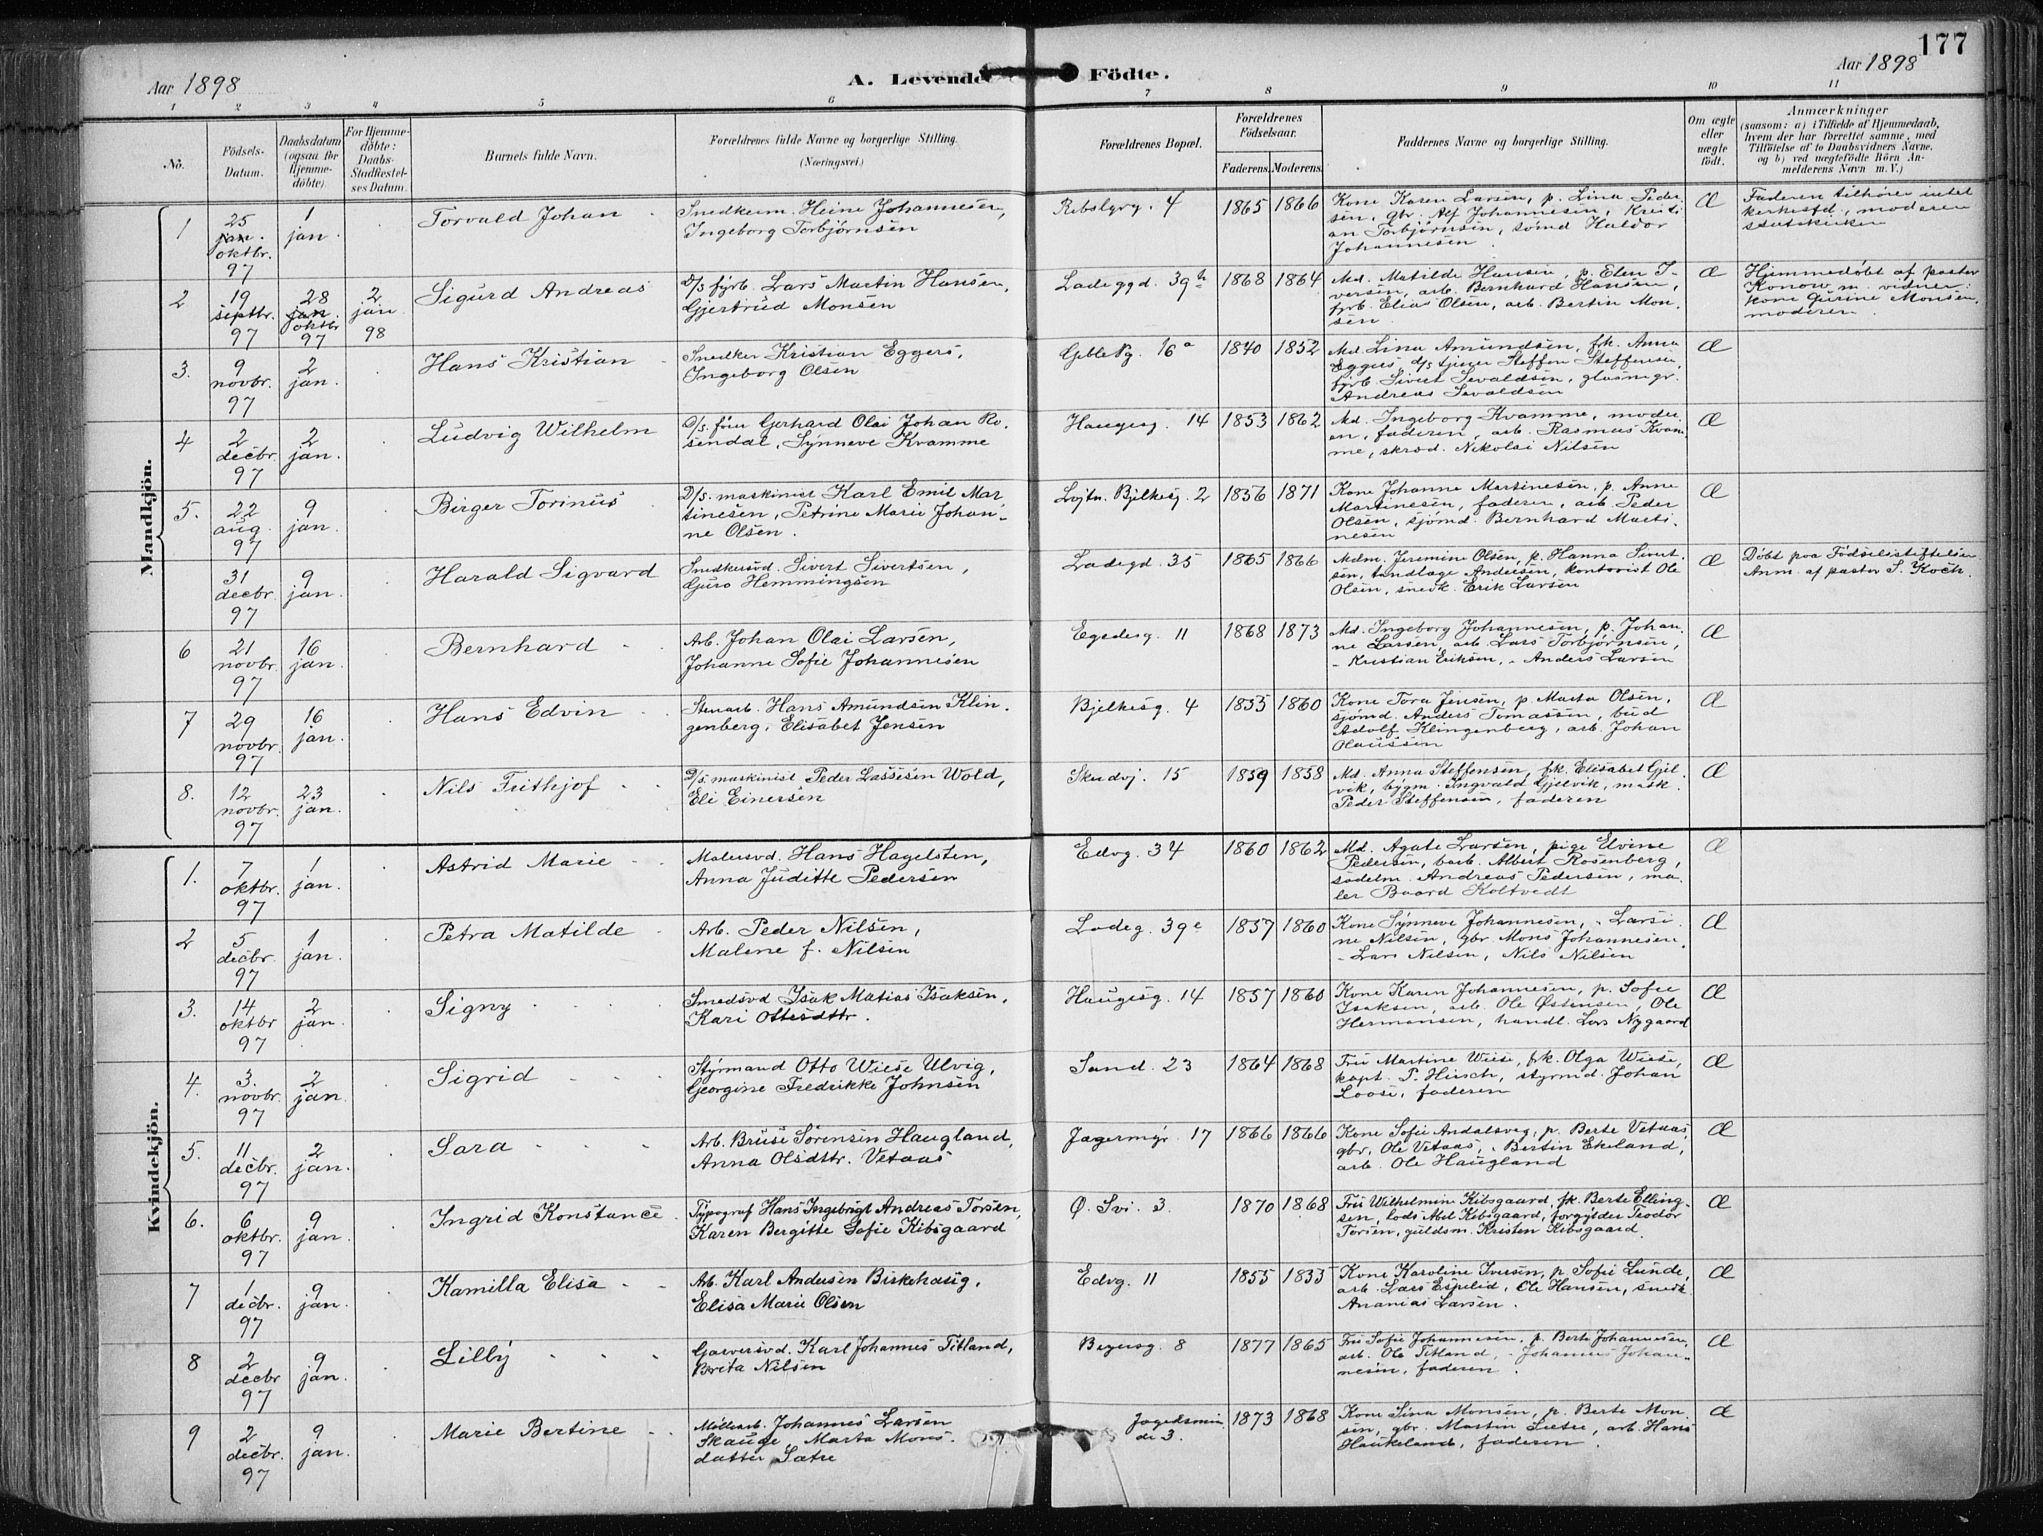 177
Aar 1898
A. Levende Födte.
Aar 1898
1 2 3 4 5 6 7 8 9 10 11
No.
Födsels-Datum.
Daabsdatum (ogsaa for Hjemmedöbte)
For Hjemmedöbte: Daabs-Stadfæstelses Datum.
Barnets fulde Navn.
Forældrenes fulde Navne og borgerlige Stilling.
(Næringsvei.)
Forældrenes Bopæl.
Forældrenes Födselsaar.
Faderens. Moderens.
Faddernes Navne og borgerlige Stilling.
Om ægte eller uægte födt.
Anmærkninger
(saasom: a) i Tilfælde af Hjemmedaab,
hvem der har forrettet samme, med
Tilföielse af to Daabsvidners Navne,
og b) ved uægtefödte Börn Anmelderens Navn m. V.)
Mandkjön.
1
25 jan. oktbr. 97
1 jan.
Torvald Johan
Snedkerm. Heine Johannesen,
Ingeborg Torbjørnsen
4
1865 1866
Kone Karen Larsen, p. Lina Peder
sen, gbr. Alf Johannesen, Kristi
an Torbjørnsen, sømd Haldor
Johannesen
Æ
Faderen tilhører intet
moderen
statskirken
2
19 septbr. 97
28 jan. oktbr 97
2 jan 98
Sigurd Andreas
D/s fyrb. Lars Martin Hansen,
Gjertrud Monsen
Ladeggd. 39 b
1868 1864
Md. Matilde Hansen, p. Elen I-
versen, arb. Bernhard Hansen,
fyrb. Elias Olsen, arb. Bertin Mon-
sen
Æ
Hjemmedøbt af pastor
Konow m. vidner:
kone Gurine Monsen,
moderen
3.
9 novbr. 97
2 jan.
Hans Kristian
Snedker Kristian Eggers,
Ingeborg Olsen
16 a
1840 1852
Md. Lina Amundsen, frk. Anna
Eggers, d/s tjener Steffen Steffensen,
fyrb. Sivert Sevaldsen,
Andreas Sevaldsen
Æ
4
2 decbr. 97
2 jan.
Ludvig Wilhelm
D/s. fører Gerhard Olai Johan Ro-
sendal, Synneve Kvamme
Haugesg. 14
1853 1862
Md. Ingeborg Kvamme, moder
en, faderen, arb. Rasmus Kvam
me, skræd. Nikolai Nilsen
Æ
5.
22 aug. 97
9 jan.
Birger Torinus
D/s. maskinist Karl Emil Mar
tinesen, Petrine Marie Johan-
ne Olsen.
Løjtn. Bjelkesg. 2
1856 1871
Kone Johanne Martinesen, p. Anne
Martinesen, faderen, arb. Peder
Olsen, sjømd. Bernhard Marti-
nesen
Æ
31 decbr. 97
9 jan.
Harald Sigvard
Snedkersvd. Sivert Sivertsen,
Guro Hemmingsen
Ladegd. 35
1865 1866
Mdm. Jeremine Olsen, p. Hanna Sivert
sen, tandlæge Andersen, kontorist Ole
Olsen, snedk. Erik Larsen
Æ
Døbt paa Fødselsstiftelsen
Anm. af pastor S. Koch.
6
21 novbr. 97
16 jan.
Bernhard
Arb. Johan Olai Larsen,
Johanne Sofie Johannesen
Egedesg. 11
1868 1873
Md. Ingeborg Johannesen, p. Johan
ne Larsen, arb. Lars Torbjørnsen,
- Kristian Eriksen, - Anders Larsen
Æ
7
29 novbr. 97
16 jan.
Hans Edvin
Stenarb. Hans Amundsen Klin-
genberg, Elisabet Jensen
Bjelkesg. 4
1855 1860
Kone Tora Jensen, p Marta Olsen,
sjømd. Anders Tomassen, bud
Adolf Klingenberg, arb. Johan
Olaussen
Æ
8.
12 novbr. 97
23 jan.
Nils Frithjof
D/s. maskinist Peder Lassesen Wold,
Eli Einersen
Skudvj. 15
1859 1858
Md. Anna Steffensen, frk. Elisabet Gjel
vik, bygm. Ingvald Gjelvik, mask.
Peder Steffensen, faderen
Æ
Kvindekjön.
1.
7 oktbr. 97
1 jan.
Astrid Marie
Malersvd. Hans Hagelsten,
Anna Juditte Pedersen
Edvg. 34
1860 1862
Md. Agate Larsen, pige Elvine
Pedersen, barb. Albert Rosenberg,
sadelm. Andreas Pedersen, ma-
ler Baard Koltvedt
Æ
2
5 decbr. 97
1 jan.
Petra Matilde
Arb. Peder Nilsen,
Malene f. Nilsen
Ladeg. 39 e
1857 1860
Kone Synneve Johannesen, - Larsi
ne Nilsen, gbr Mons Johannesen,
- Lars Nilsen, Nils Nilsen
Æ
3.
14 oktbr 97
2 jan.
Signy
Smedsvd Isak Matias Isaksen,
Kari Ottesdttr.
Haugesg. 14
1857 1860
Kone Karen Johannesen, p. Sofie
Isaksen, arb. Ole Østensen, Ole
Hermansen, handl. Lars Nygaard
Æ
4.
3. novbr. 97
2 jan.
Sigrid
Styrmand Otto Wiese Ulvig,
Georgine Fredrikke Johnsen
Sand. 23
1864 1868
Fru Martine Wiese, frk. Olga Wiese,
kapt. P. Hirsch, styrmd. Johan
Loose, faderen
Æ
5.
11 decbr. 97
2 jan.
Sara
Arb. Bruse Sørensen Haugland,
Anna Olsdttr. Vetaas
Jægermyr. 17
1866 1866
Kone Sofie Andalsveg, p. Berte Vetaas,
gbr. Ole Vetaas, - Bertin Ekeland,
arb. Ole Haugland
Æ
6.
6 oktbr. 97
9 jan.
Ingrid Konstance
Typograf Hans Ingebrigt Andreas Torsen,
Karen Bergitte Sofie Kibsgaard
Ø. Svi. 3.
1870 1868
Fru Wilhelmine Kibsgaard, frk. Berte Elling-
sen, lods Abel Kibsgaard, forgylder Teodor
Torsen, guldsm. Kristen Kibsgaard.
Æ
7
1 decbr. 97
9 jan.
Kamilla Elisa
Arb. Karl Andersen Birkehaug,
Elisa Marie Olsen
Edvg. 11
1855 1855
Kone Karoline Iversen, p. Sofie Lunde,
arb. Lars Espelid, Ole Hansen, snedk
Ananias Larsen.
Æ
8
2 decbr 97
9 jan.
Lilly
Garversvd. Karl Johannes Titland,
Brita Nilsen
8
1877 1865
Fru Sofie Johannesen, p. Berte Johannesen,
arb. Ole Titland, - Johannes Johan-
nesen, faderen.
Æ
9
2 decbr. 97
9 jan.
Marie Bertine
Møllearb. Johannes Larsen
Skauge, Marta Mons-
datter Sætre
de 3.
1873 1868
Kone Sina Monsen, p. Berte Mon
sen, gbr. Martin Sætre, arb. Hans
Haukeland, faderen.
Æ